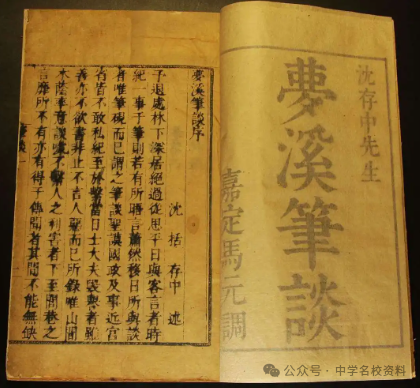 沈存中先生
夢溪筆談
嘉定馬元調
夢溪筆談序
沈括存中述
予退處林下深居絕過從思平日與客言者時
紀一事于筆則若有所晤言蕭然移日所與談
者唯筆硯而已謂之筆談聖謨國政及事近宮
省皆不敢私紀至於繫當日士大夫毀譽者雖
善亦不欲書非止不言人惡而已所錄唯山間
木蔭率意談噱不繫人之利害者下至閭巷之
言靡所不有亦有得于傳聞者其間不能無缺
公众号·中学名校资料